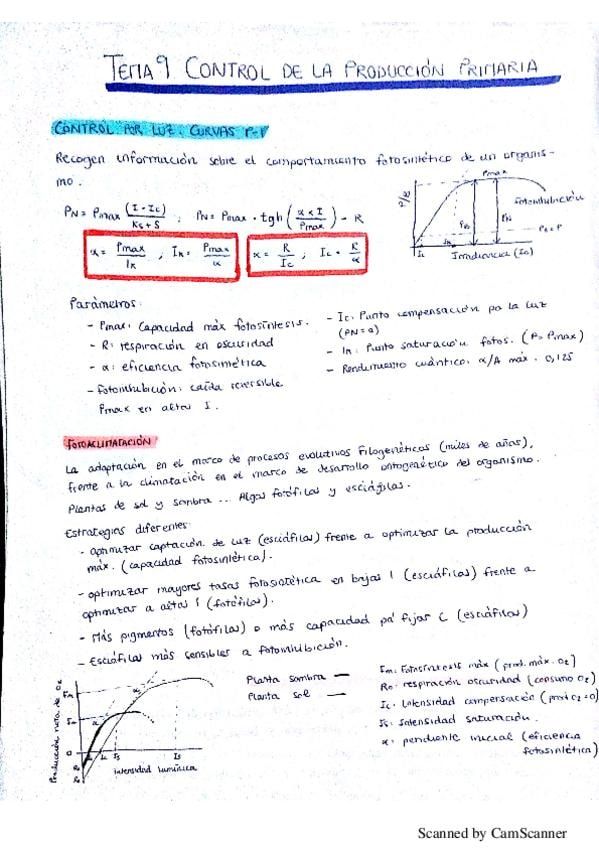 TEMA 9 CONTROL DE LA PRODUCCIÓN PRIMARIA
CONTROL POR LUZ: CURVAS P-I
Recogen información sobre el comportamiento fotosintético de un organis-
mo.
PN = Pmax (I - Ic) / Ks + S ; PN = Pmax · tgh (α x I / Pmax) - R
α = Pmax / IK ; IK = Pmax / α
α = R / Ic ; Ic = R / α
P/R
Pmax
Fotoinhibición
PN
Ic
IK
Irradiancia (I0)
Parámetros:
- Pmax: Capacidad máx fotosíntesis.
- R: respiración en oscuridad
- α: eficiencia fotosintética
- Fotoinhibición: caída reversible
Pmax en altas I.
- Ic: Punto compensación pa la luz
(PN=0)
- IK: Punto saturación fotos. (P= Pmax)
- Rendimiento cuántico: α/A máx. 0,125
FOTOACLIMATACIÓN
La adaptación en el marco de procesos evolutivos filogenéticos (miles de años),
frente a la climatación en el marco de desarrollo ontogenético del organismo.
Plantas de sol y sombra ... Algas fotófilas y esciáfilas.
Estrategias diferentes:
- optimizar captación de luz (esciáfilas) frente a optimizar la producción
máx. (capacidad fotosintética).
- optimizar mayores tasas fotosintética en bajas I (esciáfilas) frente a
optimizar a altas I (fotófilas).
- Más pigmentos (fotófilas) o más capacidad pa' fijar C (esciáfilas)
- Esciáfilas más sensibles a fotoinhibición.
Producción neta de O2
Fm
Fm
0
R0
R0
α
α
Ic
Ic
Is
Is
Intensidad lumínica
Planta sombra —
Planta sol —
Fm: Fotosíntesis máx (prod. máx. O2)
R0: respiración oscuridad (consumo O2)
Ic: Intensidad compensación (prod O2=0)
Is: Intensidad saturación.
α: pendiente inicial (eficiencia
fotosintética)
Scanned by CamScanner